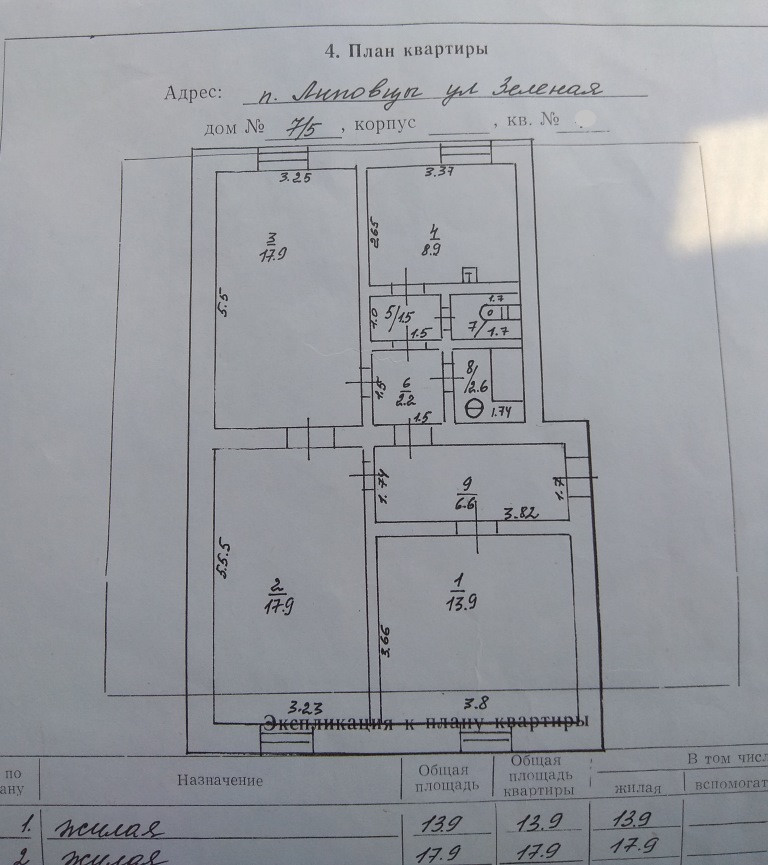 4. План квартиры
Адрес: п. Липовцы ул Зеленая
дом № 7/5, корпус ____, кв. № ____
3.25
3.37
3
17.9
5.5
2.65
4
8.9
1.0
5/1.5
1.5
1.7
7/1.7
1.5
6
2.2
1.5
8/2.6
1.74
1.74
9
6.6
1.7
3.82
5.5.5
2
17.9
3.23
1
13.9
3.66
3.8
Экспликация к плану квартиры
по
ану
Назначение
Общая
площадь
Общая
площадь
квартиры
В том числ
жилая
вспомогат
1. жилая 13.9 13.9 13.9
2 жилая 17.9 17.9 17.9